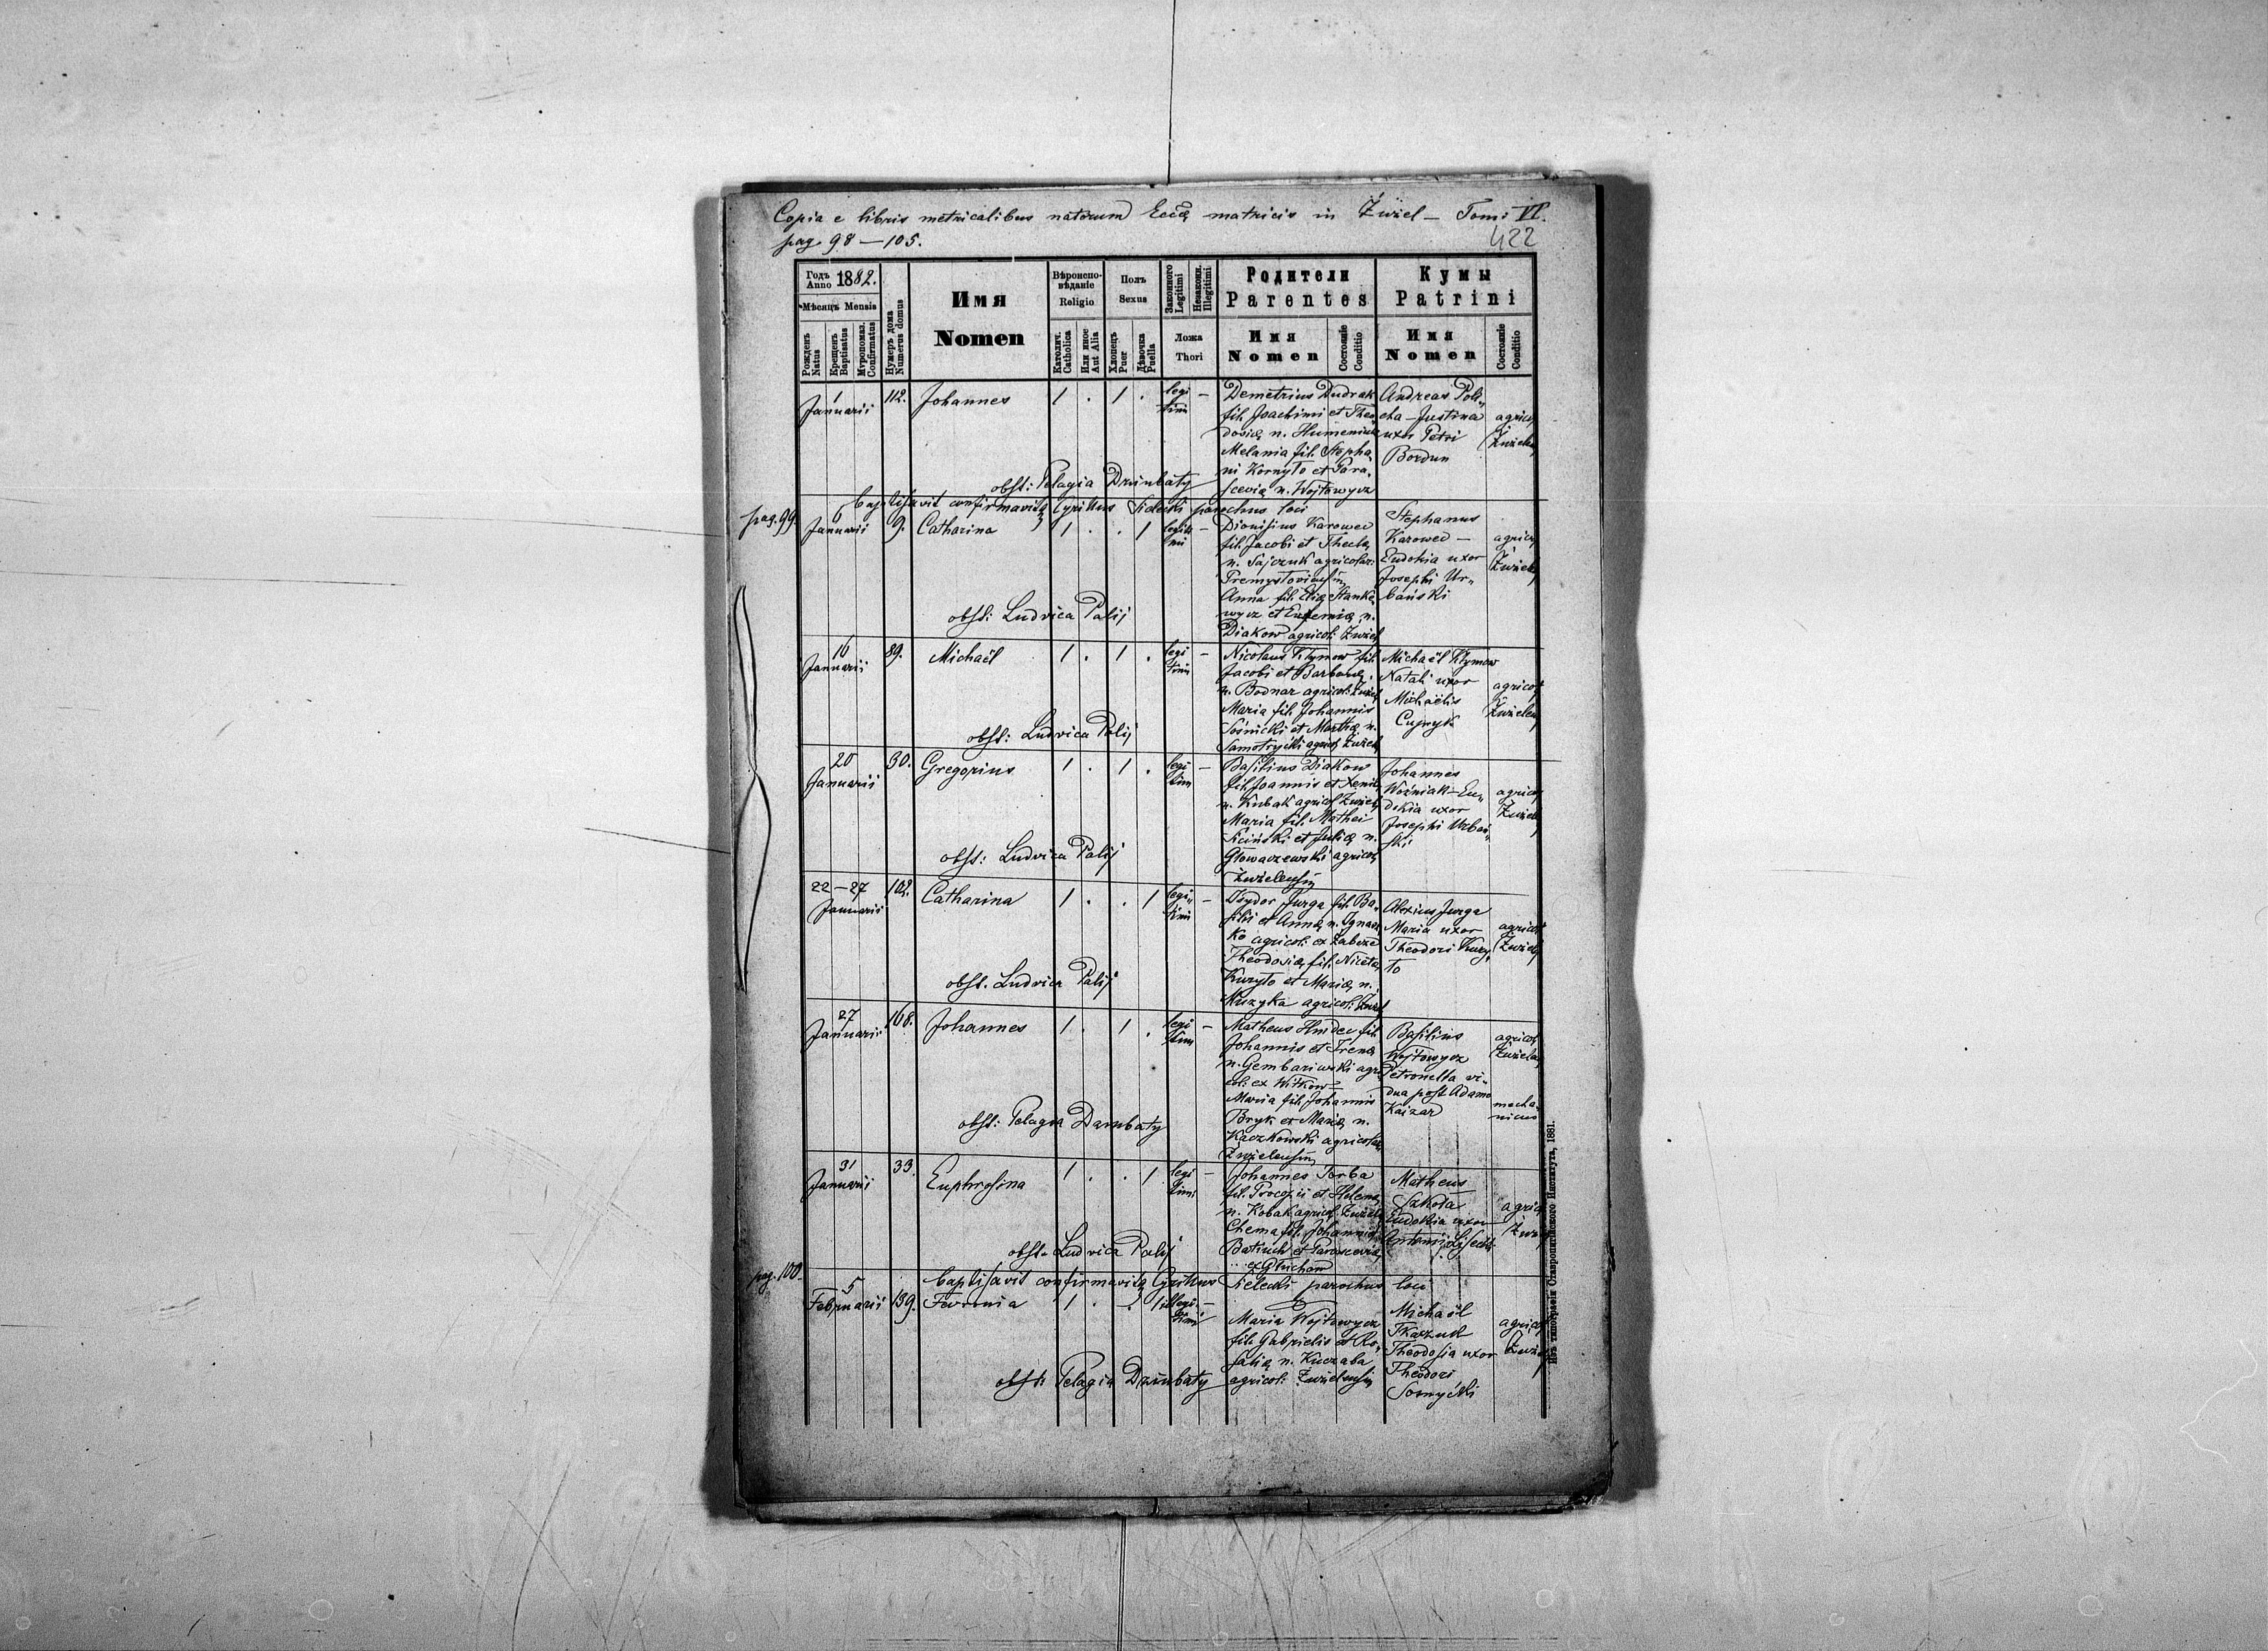 Copia e libris metricalibus natorum Eccl matricis in Żwżel — Tomi VI.
pag. 98 — 105.
422
Годъ Anno 1882.
Мѣсяцъ Mensis
Рожденъ Natus
Крещенъ Baptisatus
Мѵропомаз. Confirmatus
Нумеръ дома Numerus domus
Имя
Nomen
Вѣроисповѣданіе
Religio
Католич. Catholica
Или иное Aut Alia
Полъ
Sexus
Хлопецъ Puer
Дѣвочка Puella
Законного Legitimi
Незаконн. Illegitimi
Ложа
Thori
Родители
Parentes
Имя
Nomen
Состояніе Conditio
Кумы
Patrini
Имя
Nomen
Состояніе Conditio
1 Januarii 112. Johannes 1 . 1 . legitimi —
Demetrius Dudrak
fil. Joachimi et Theo
dosiæ n. Humeniuk
Melania fil. Stepha
ni Kornyło et Para
scevia n. Wojtowycz
Andreas Pole
cha — Justina
uxor Petri
Bordun
agricol
obst: Pelagia Dzumbaty
Baptisavit confirmavitq Cyrillus Sielecki parochus loci
pag. 99.
6 Januarii 9. Catharina 1 . . 1 legitimi —
Dionisius Karowec
fil. Jacobi et Thecla
n. Sajczuk agricolar.
Anna fil. Eliæ Stanke
wycz et Eufemiæ n.
Diakow agricol. Żwżel
Stephanus
Karowec —
Eudokia uxor
Josephi Ur„
bański
agricol
obst: Ludvica Palij
16 Januarii 89. Michaël 1 . 1 . legitimi —
Nicolaus Klymow fil.
Jacobi et Barbara
n. Bodnar agricol. Żwżel
Maria fil. Johannis
Sośnicki et Marthæ n.
Michaël Klymow
Natali uxor
Michaëlis
agricol
obst: Ludvica Palij
20 Januarii 30. Gregorius 1 . 1 . legitimi —
Basilius Diakow
fil. Joannis et Xenia
n. Kubak agricol Żwżel
Maria fil. Mathei
Siciński et Julia n.
Głowaczewski agricol
Johannes
Woźniak — Eu„
dokia uxor
Josephi Urbań„
ski
agricol
Żwżel
obst: Ludvica Palij
22 — 27 Januarii 102. Catharina 1 . . 1 legitimi —
Isydor Jurga fil. Ba„
silii et Anna n. Ignac
ko agricol. ex Zaboże
Theodosia fil. Niceta
Kuryło et Maria n.
Muzyka agricol. Żwżel
Alexius Jurga
Maria uxor
Theodori Kury„
ło
agricol
obst. Ludvica Palij
27 Januarii 168. Johannes 1 . 1 . legitimi —
Matheus Hnidec fil.
Johannis et Irena
n. Gembariwski agri
col: ex Witkow
Maria fil. Johannis
Bryk et Maria n.
Kaczkowski agricolar
Basilius
Wojtowycz
Petronella vi„
dua post Adamo
Kaizar
agricol
mecha„
nicus
obst: Pelagia Dzumbaty
31 Januarii 33. Euphrosina 1 . . 1 legitimi —
Johannes Torba
fil. Procopii et Helena
n. Kobak agricol. Żwżel
Chema fil. Johannis
Batiuch et Parascevia
ex Głuchow
Matheus
Szkoła
Eudokia uxor
agricol
obst. Ludvica Palij
pag. 100
Baptisavit confirmavitq Cyrillus Sielecki parochus loci
5 Februarii 139. Fevronia 1 . — 1 illegitimi —
Maria Wojtowycz
fil. Gabrielis et Ro„
salia n. Kuczaba
agricol. Żwżelensi
Michaël
Tkaczuk
Theodosia uxor
Theodori
agricol
obst: Pelagia Dzumbaty
Изъ типографіи Ставропигійского Института, 1881.